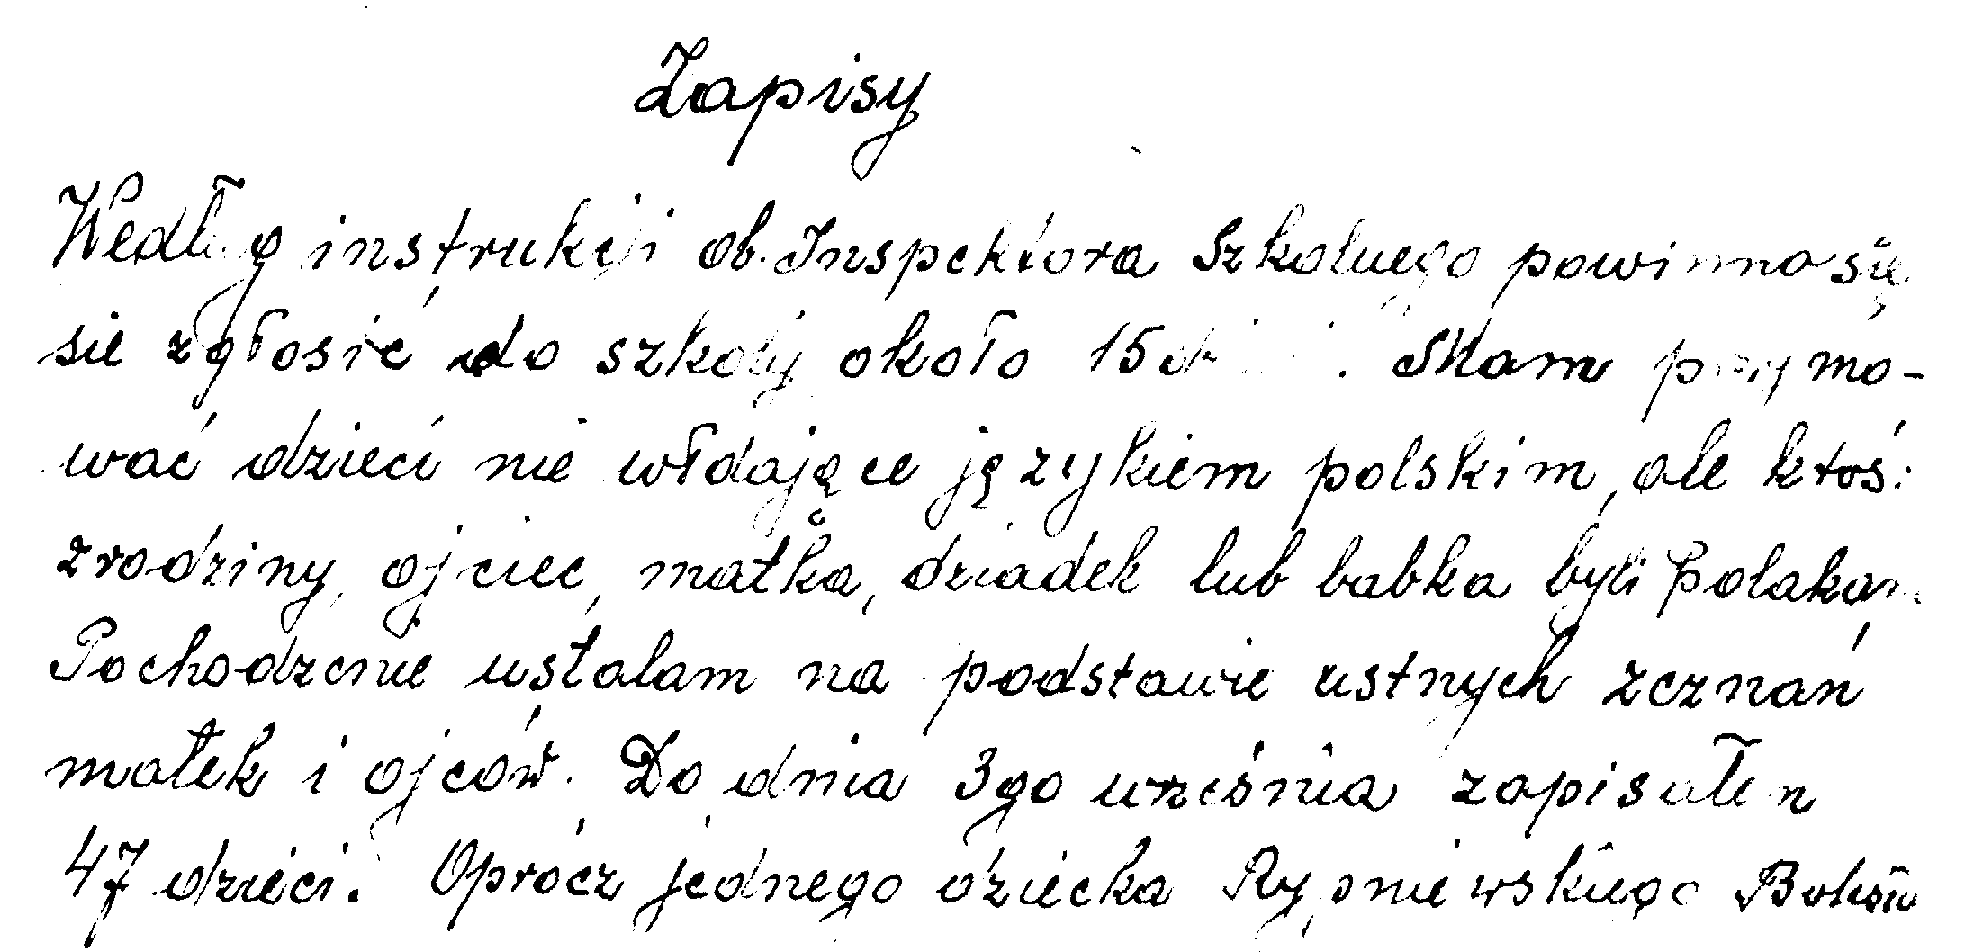 Zapisy
Według instrukcji ob. Inspektora Szkolnego powinno się
sie zgłosić do szkoły około 15 Mam przyjmo-
wać dzieci nie władające językiem polskim, ale ktoś
z rodziny, ojciec, matka, dziadek lub babka byli Polakam
Pochodzenie ustalam na podstawie ustnych zeznań
matek i ojców. Do dnia 3go września zapisałem
47 dzieci. Oprócz jednego dziecka Rypniewskiego